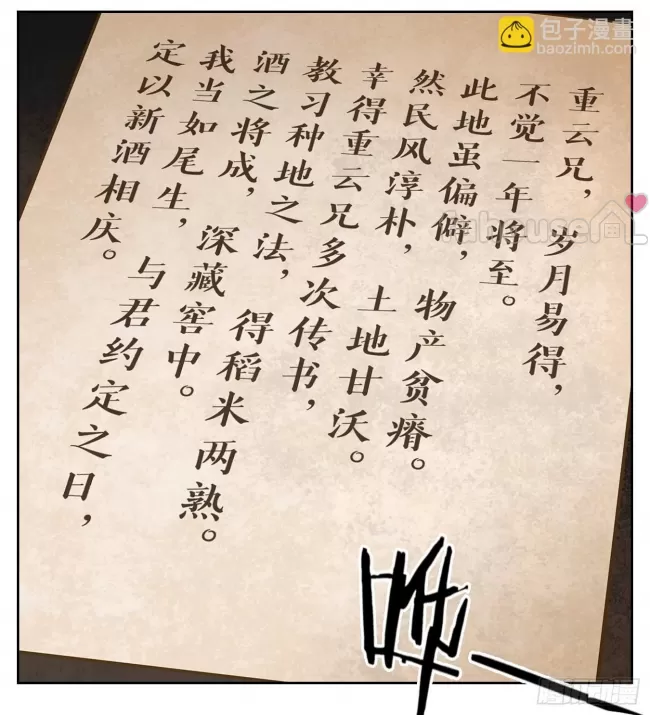 包子漫畫
baozimh.com
重云兄，岁月易得，
不觉一年将至。
此地虽偏僻，物产贫瘠。
然民风淳朴，土地甘沃。
幸得重云兄多次传书，
教习种地之法，得稻米两熟。
酒之将成，深藏窖中。
我当如尾生，与君约定之日，
定以新酒相庆。
哗